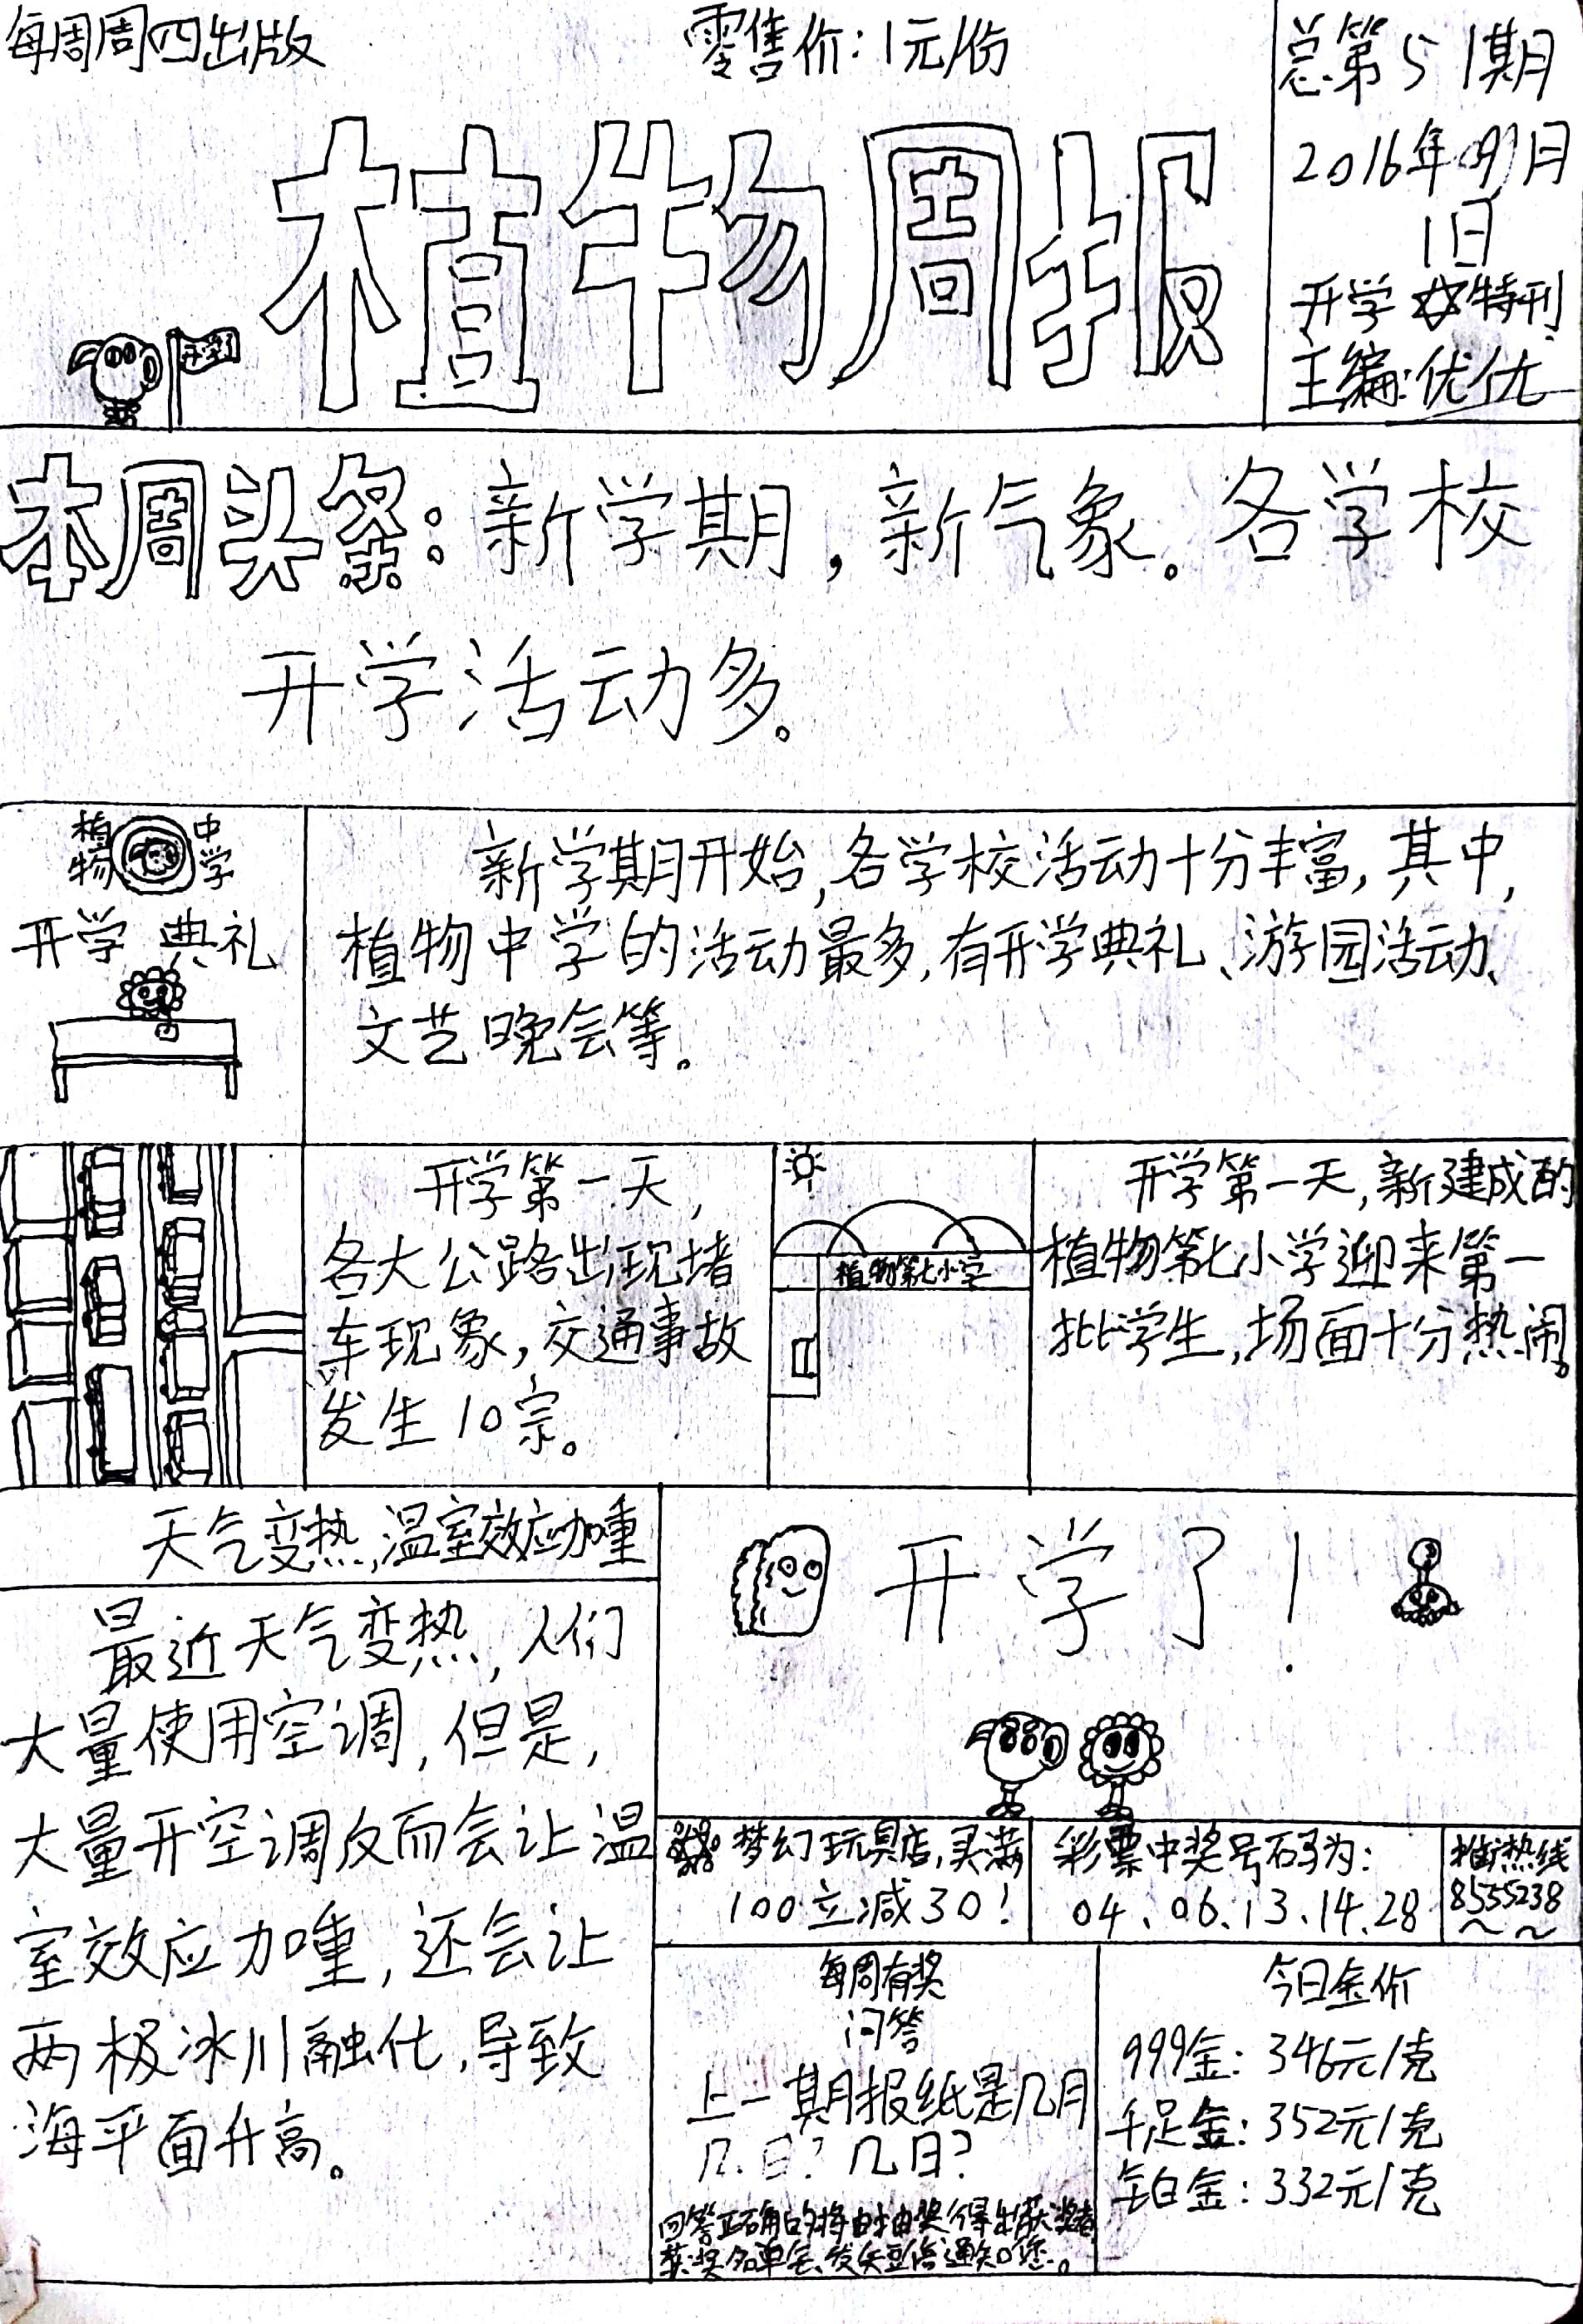 每周周四出版
零售价:1元/份
总第51期
2016年09月
1日
开学☆特刊
主编:优优
植物周报
开学
本周头条:新学期,新气象。各学校
开学活动多。
植物中学
开学 典礼
新学期开始,各学校活动十分丰富,其中,
植物中学的活动最多,有开学典礼、游园活动、
文艺晚会等。
开学第一天,
各大公路出现堵
车现象,交通事故
发生10宗。
植物第七小学
开学第一天,新建成的
植物第七小学迎来第一
批学生,场面十分热闹。
天气变热,温室效应加重
最近天气变热,人们
大量使用空调,但是,
大量开空调反而会让温
室效应加重,还会让
两极冰川融化,导致
海平面升高。
开学了!
梦幻玩具店,买满
100立减30!
彩票中奖号码为:
04、06、13、14、28
推广热线
8555238
~ ~
每周有奖
问答
上一期报纸是几月
几日?几日?
回答正确的将由抽奖得出获奖者,
获奖名单会发失豆信通知您。
今日金价
999金:346元/克
千足金:352元/克
铂金:332元/克